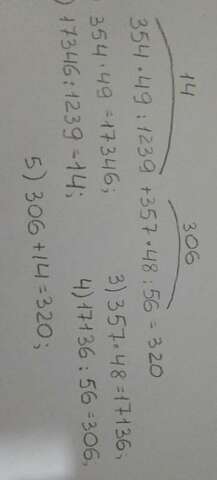 14 306
354·49:1239+357·48:56=320
354·49=17346; 3)357·48=17136;
)17346:1239=14; 4)17136:56=306,
5)306+14=320;